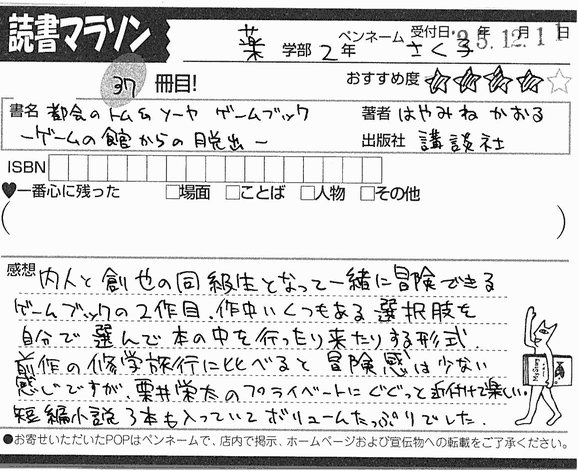 読書マラソン
薬 学部 2年 ペンネーム さく子 受付日 '35.12.11
年 月 日
37 冊目! おすすめ度 ★★★★☆
書名 都会のトム&ソーヤ ゲームブック
―ゲームの館からの脱出―
著者 はやみねかおる
出版社 講談社
ISBN
♥一番心に残った □場面 □ことば □人物 □その他
( )
感想 内人と創也の同級生となって一緒に冒険できる
ゲームブックの2作目。作中いくつもある選択肢を
自分で選んで本の中を行ったり来たりする形式。
前作の修学旅行に比べると冒険感は少ない
感じですが、栗井栄太のプライベートにぐぐっと近付けて楽しい。
短編小説3本も入っていてボリュームたっぷりでした。
●お寄せいただいたPOPはペンネームで、店内で掲示、ホームページおよび宣伝物への転載をご了承ください。